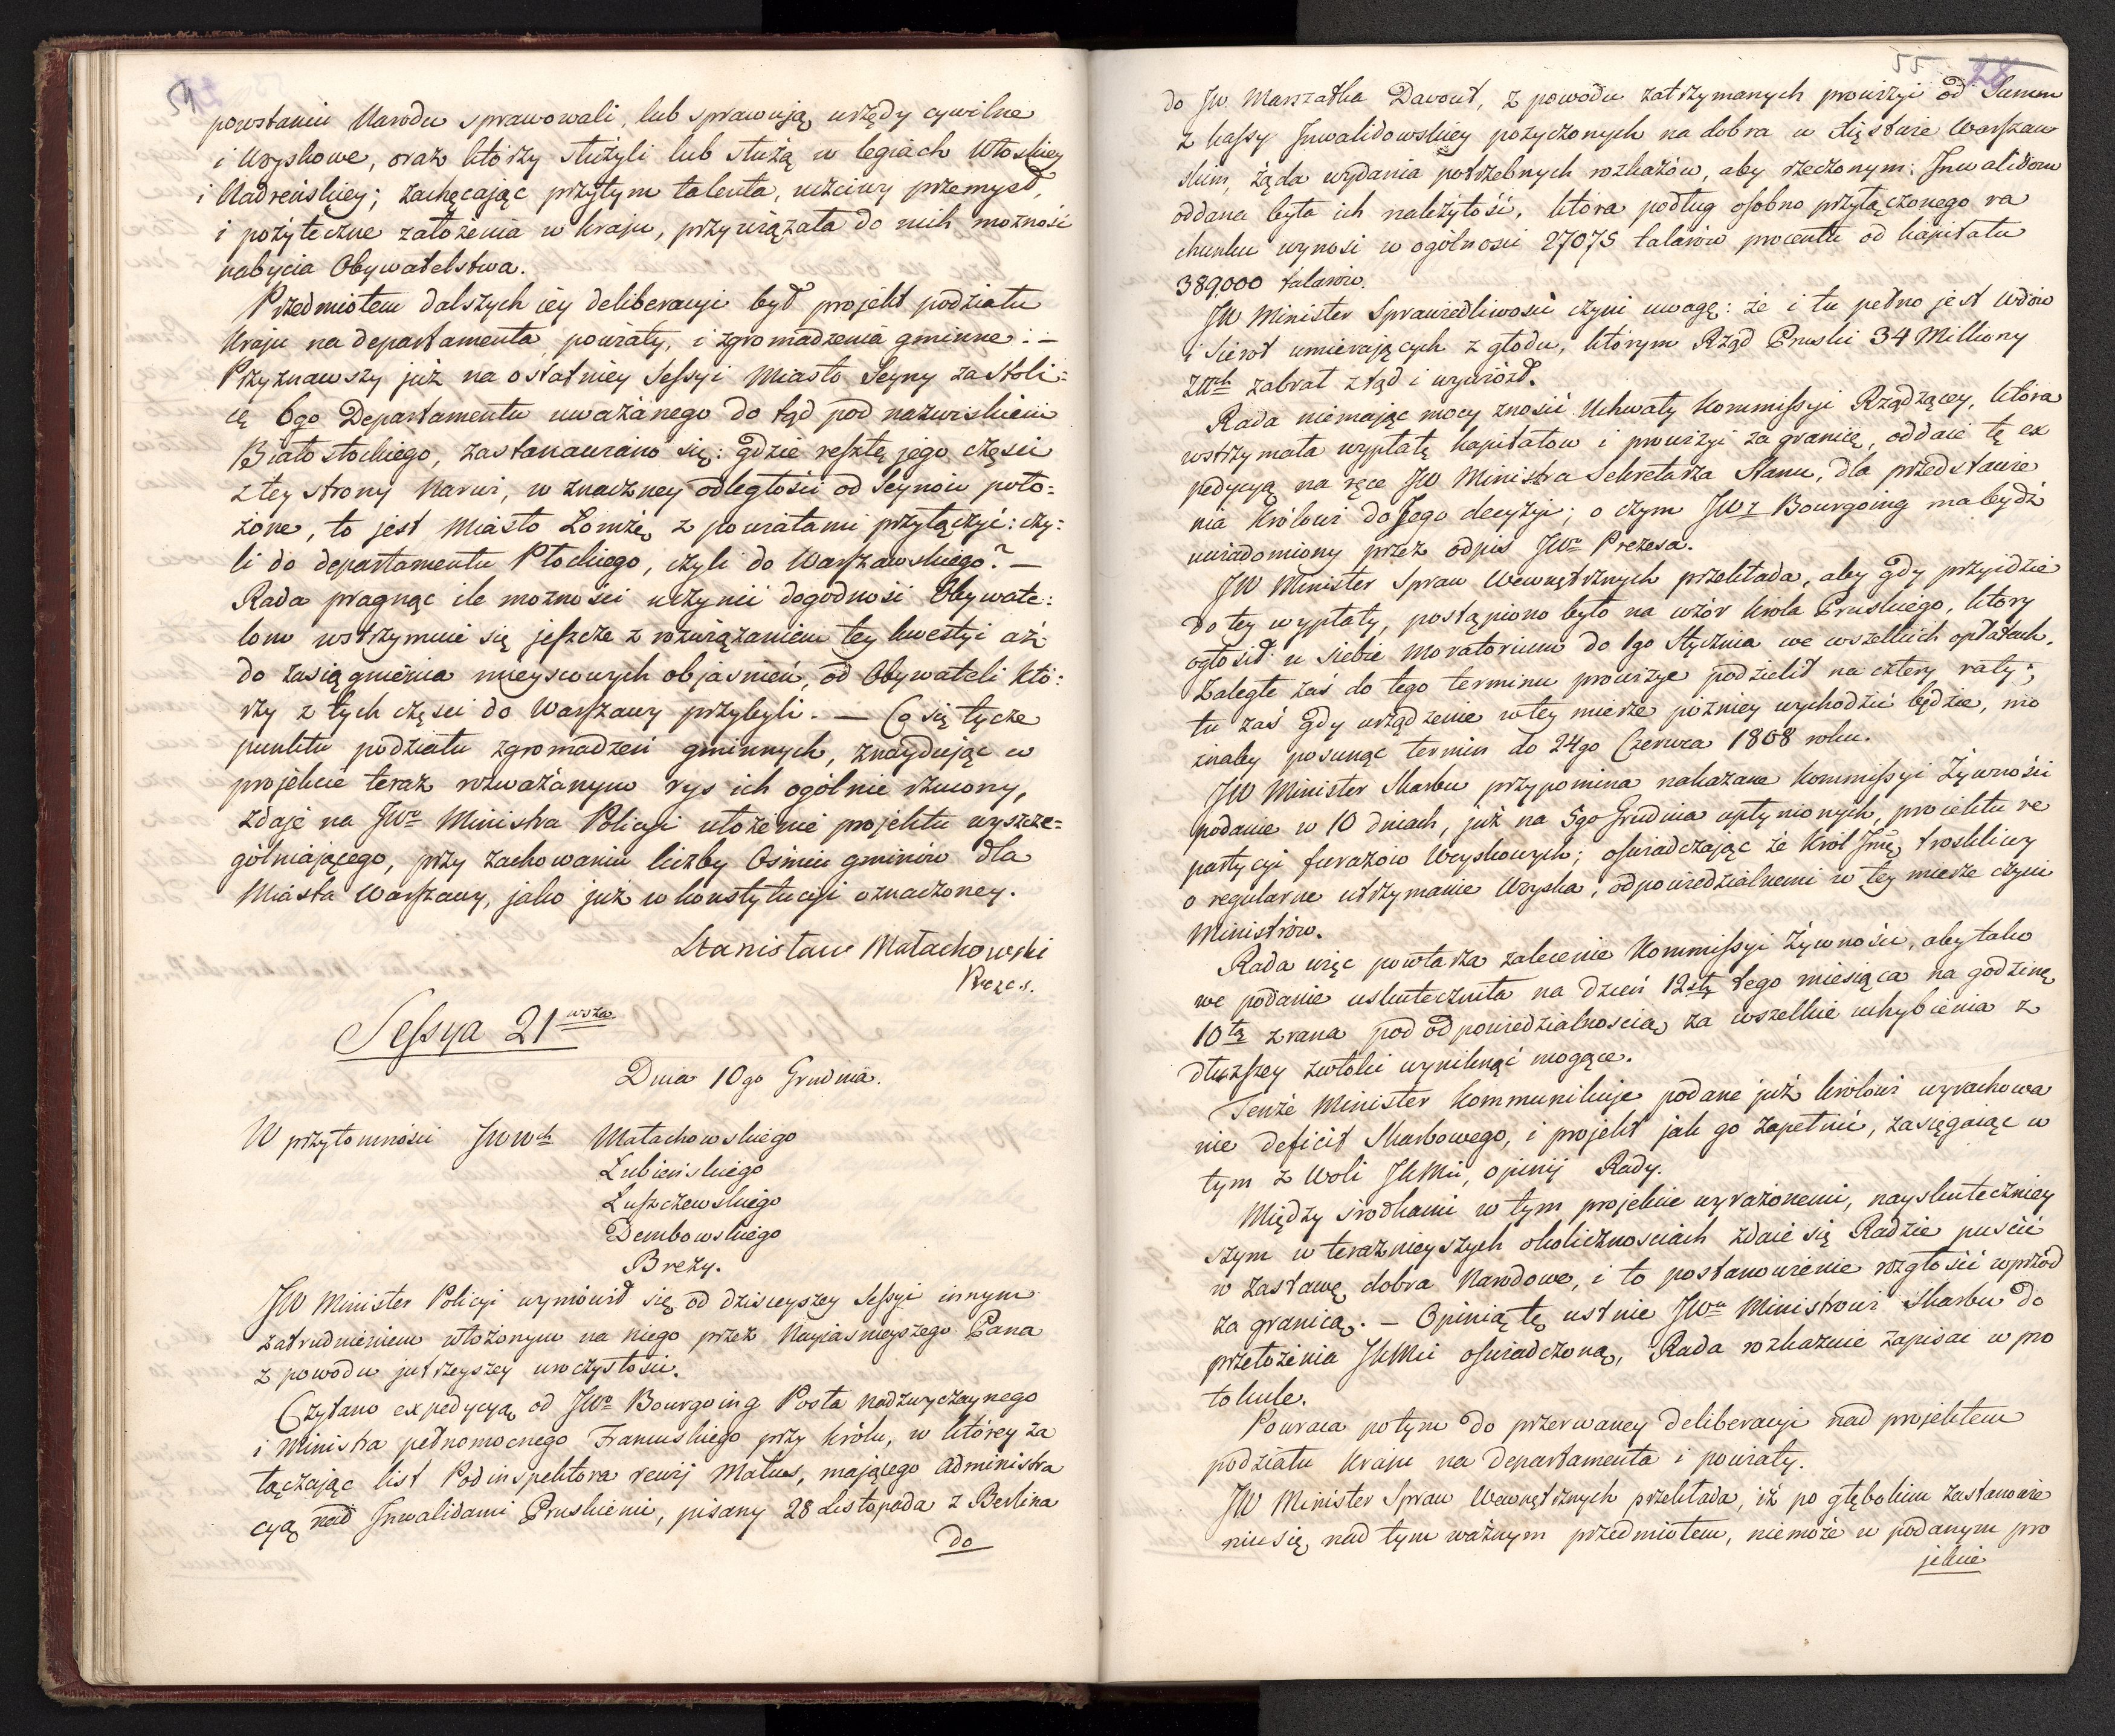 54
powstaniu Narodu sprawowali, lub sprawują urzędy cywilne
i Woyskowe, oraz którzy służyli lub służą w legiach Włoskiey
i Nadreńskiey; zachęcając przytym talenta, uczciwy przemysł,
i pożyteczne założenia w kraju, przywiązała do nich możność
nabycia Obywatelstwa.
Przedmiotem dalszych iey deliberacyi był projekt podziału
Kraju na departamenta, powiaty, i zgromadzenia gminne: —
Przyznawszy już na ostatniéy Sessyi Miasto Seyny za Stoli=
cę 6go Departamentu uważanego do tąd pod nazwiskiem
Białostockiego, zastanawiano się: gdzie resztę jego części
z tey strony Narwi, w znaczney odległości od Seynów poło=
żone, to jest Miasto Łomżę z powiatami przyłączyć: czy=
li do departamentu Płockiego, czyli do Warszawskiego? —
Rada pragnąc ile możności uczynić dogodność Obywate=
lom wstrzymuie się jeszcze z rozwiązaniem tey kwestyi aż
do zasiągnienia mieyscowych objaśnień, od Obywateli któ=
rzy z tych części do Warszawy przybyli. — Co się tycze
punktu podziału zgromadzeń gminnych, znayduiąc w
projekcie teraz rozważanym rys ich ogólnie rzucony,
zdaje na JWo Ministra Policyi ułożenie projektu wyszcze=
gólniającego, przy zachowaniu liczby Ośmiu gminów dla
Miasta Warszawy, jako już w konstytucyi oznaczoney.
Stanisław Małachowski
Prezes.
Sessya 21wsza
Dnia 10go Grudnia.
W przytomności JWWch Małachowskiego
Łubieńskiego
Łuszczewskiego
Dembowskiego
Brezy.
JW Minister Policyi wymówił się od dzisieyszey Sessyi innym
zatrudnieniem włożonym na niego przez Nayiaśnieyszego Pana
z powodu jutrzeyszey uroczystości.
Czytano expedycyą od JWo Bourgoing Posła nadzwyczaynego
i Ministra pełnomocnego Francuskiego przy Królu, w którey za
łączając list Podinspektora rewij Malus, mającego administra
cyą nad Inwalidami Pruskiemi, pisany 28 Listopada z Berlina
do
55 28
do JW. Marszałka Davout, z powodu zatrzymanych prowizyi od Summ
z kassy Inwalidowskiey pożyczonych na dobra w Xięstwie Warszaw
skim, żąda wydania potrzebnych rozkazów, aby rzeczonym: Inwalidom
oddana była ich należytość, która podług osobno przyłączonego ra
chunku wynosi w ogólności 27075 talarów procentu od kapitału
389,000 talarów.
JW Minister Sprawiedliwości czyni uwagę: że i tu pełno jest Wdów
i Sierot umierających z głodu, którym Rząd Pruski 34 Milliony
Złtch zabrał ztąd i wywiózł.
Rada niemając mocy znosić Uchwały Kommissyi Rządzącey, która
wstrzymała wypłatę kapitałow i prowizyi za granicę, oddaie tę ex
pedycyą na ręce JW Ministra Sekretarza Stanu, dla przedstawie
nia Królowi do Jego decyzyi; o czym JWz Bourgoing ma bydź
uwiadomiony przez odpis JWo Prezesa.
JW Minister Spraw Wewnętrznych przekłada, aby gdy przyidzie
do tey wypłaty, postąpiono było na wzór króla Pruskiego, który
ogłosił u siebie moratorium do 1go Stycznia we wszelkich opłatach.
Zaległe zaś do tego terminu prowizye podzielił na cztery raty;
tu zaś gdy urządzenie w tey mierze pózniey wychodzić będzie, mo
żnaby posunąc termin do 24go Czerwca 1808 roku.
JW Minister Skarbu przypomina nakazane Kommissyi Żywności
podanie w 10 dniach, już na 5go Grudnia upłynionych, projektu re
partycyi furażów Woyskowych; oświadczając że Król Jmć, troskliwy
o regularne utrzymanie Woyska, odpowiedzialnemi w tey mierze czyni
Ministrów.
Rada więc powtarza zalecenie Kommissyi Żywności, aby tako
we podanie uskuteczniła na dzień 12sty tego miesiąca na godzinę
10tą zrana pod odpowiedzialnością za wszelkie uchybienia z
dłuższey zwłoki wyniknąć mogące.
Tenże Minister Kommunikuje podane już królowi wyrachowa
nie deficit Skarbowego, i projekt jak go zapełnić, zasięgaiąc w
tym z Woli JKMci, opinij Rady.
Między środkami w tym projekcie wyrażonemi, nayskuteczniey
szym w teraznieyszych okolicznościach zdaie się Radzie puścić
w zastawę dobra Narodowe, i to postanowienie rozgłosić wprzód
za granicą. — Opinią tę ustnie JWu Ministrowi Skarbu do
przełożenia JKMci oświadczoną, Rada rozkazuie zapisać w pro
tokule.
Powraca potym do przerwaney deliberacyi nad projektem
podziału kraju na departamenta i powiaty.
JW Minister Spraw Wewnętrznych przekłada, iż po głębokim zastanowie
niu się nad tym ważnym przedmiotem, niemoże w podanym pro
jekcie